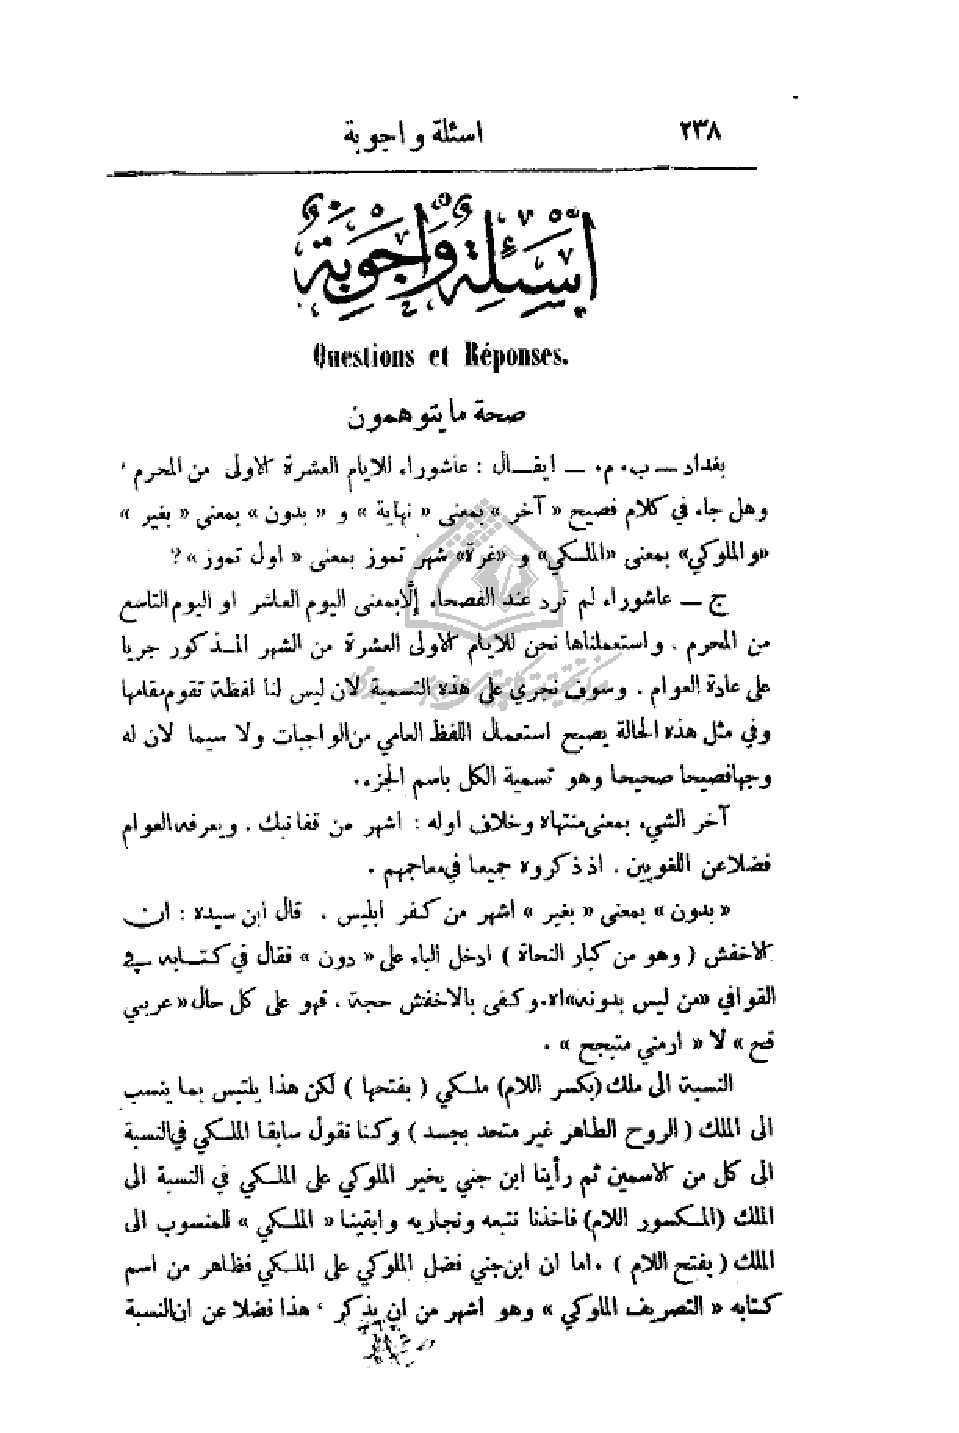 ٢٣٨ اسئلة واجوبة
أسئلة وأجوبة
Questions et Réponses.
صحة ما يتوهمون
بغداد — ب. م. — ايقال : عاشوراء للايام العشرة الاولى من المحرم ،
وهل جاء في كلام فصيح « آخر » بمعنى « نهاية » و « بدون » بمعنى « بغير »
«والملوكي» بمعنى «الملكي» و «غرة» شهر تموز بمعنى « اول تموز »؟
ج — عاشوراء لم ترد عند الفصحاء إلا بمعنى اليوم العاشر او اليوم التاسع
من المحرم . واستعملناها نحن للايام الاولى العشرة من الشهر المذكور جريا
على عادة العوام . وسوف نجري على هذه التسمية لان ليس لنا لفظة تقوم مقامها
وفي مثل هذه الحالة يصبح استعمال اللفظ العامي من الواجبات ولا سيما لان له
وجها فصيحا صحيحا وهو تسمية الكل باسم الجزء.
آخر الشيء بمعنى منتهاه وخلاف اوله : اشهر من قفا نبك . ويعرفه العوام
فضلا عن اللغويين . اذ ذكروه جميعا في معاجمهم .
« بدون » بمعنى « بغير » اشهر من كفر ابليس . قال ابن سيده : ان
الاخفش ( وهو من كبار النحاة ) ادخل الباء على « دون » فقال في كتابه في
القوافي «من ليس بدونه» اه. وكفى بالاخفش حجة ، فهو على كل حال « عربي
قح » لا « ارمني متبجح » .
النسبة الى ملك (بكسر اللام) ملكي ( بفتحها ) لكن هذا يلتبس بما ينسب
الى الملك ( الروح الطاهر غير متحد بجسد ) وكنا نقول سابقا الملكي في النسبة
الى كل من الاسمين ثم رأينا ابن جني يخير الملوكي على الملكي في النسبة الى
الملك (المكسور اللام) فاخذنا نتبعه ونجاريه وابقينا « الملكي » للمنسوب الى
الملك ( بفتح اللام ) . اما ان ابن جني فضل الملوكي على الملكي فظاهر من اسم
كتابه « التصريف الملوكي » وهو اشهر من ان يذكر . هذا فضلا عن ان النسبة